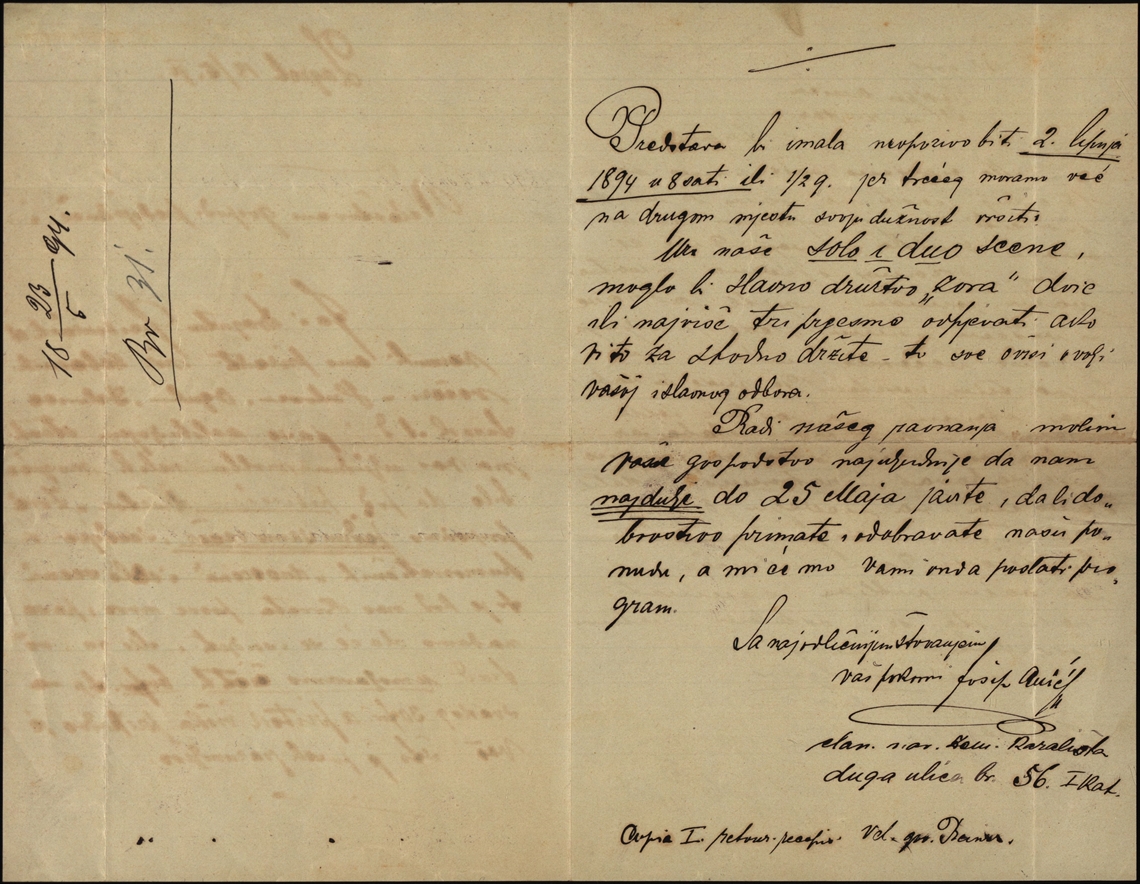 18 23/5 94.
Br 31.
Predstava bi imala neopozivo biti 2. lipnja
1894 u 8 sati ili 1/2 9. jer trećeg moramo već
na drugom mjestu svoju dužnost vršiti.
Uz naše solo i duo scene,
moglo bi slavno društvo „Zora“ dvie
ili najviše tri pjesme odpjevati ako
vi to za shodno držite - to sve ovisi o volji
vašoj i slavnog odbora.
Radi našeg ravnanja, molim
vaše gospodstvo najuljudnije da nam
najdulje do 25 Maja javite, da li do„
brostivo primate i odobravate našu po„
nudu, a mi ćemo Vami onda poslati pro„
gram.
Sa najodličnijim štovanjem
vaš pokorni Josip Anić
član. nar. zem. Kazališta
duga ulica br. 56. I kat.
Copia I. retour-recepis. Vel. gosp.